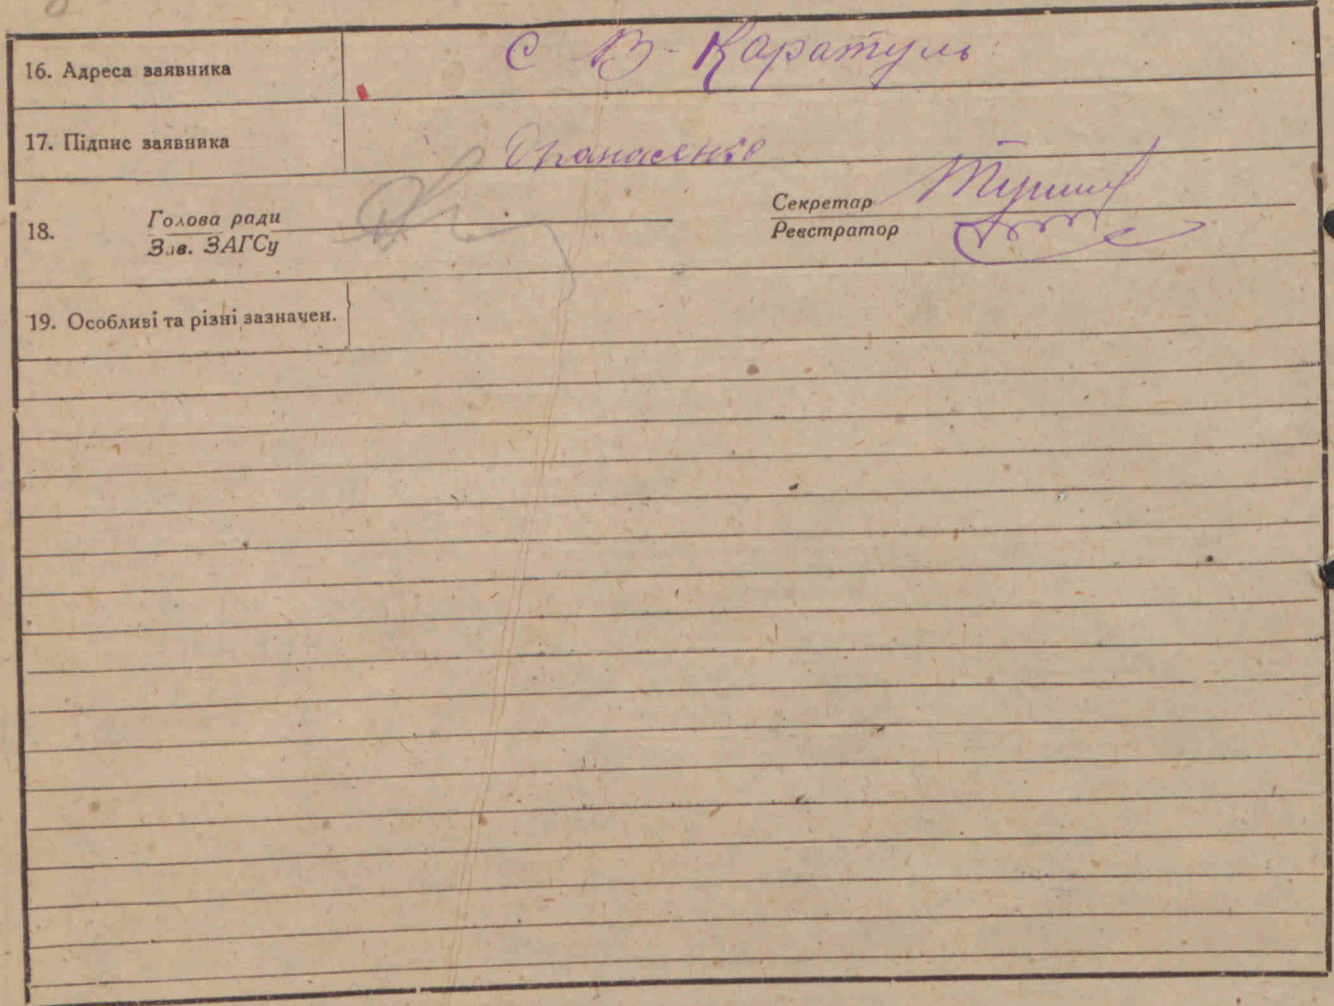 16. Адреса заявника С В-Каратуль
17. Підпис заявника Опанасенко
18. Голова ради Секретар
Зав. ЗАГСу Реєстратор
19. Особливі та різні зазначен.